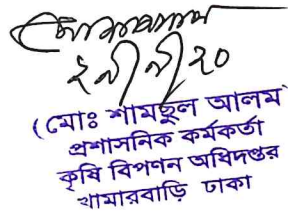 (মোঃ শামছুল আলম)
প্রশাসনিক কর্মকর্তা
কৃষি বিপণন অধিদপ্তর
খামারবাড়ি ঢাকা